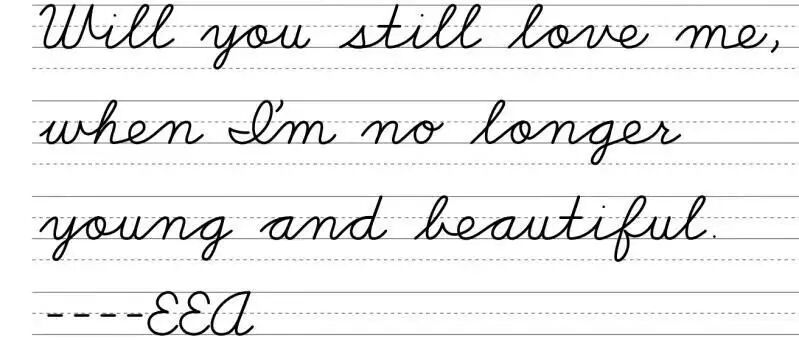 Will you still love me,
when I'm no longer
young and beautiful.
----EEA